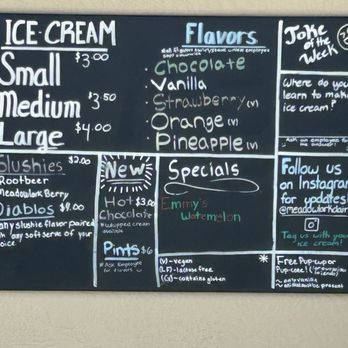 ICE-CREAM
Small $3.00
Medium $3.50
Large $4.00
Flavors
Chocolate
· Vanilla
· Strawberry (v)
· Orange (v)
· Pineapple (v)
Joke
of the
Week
Where do you
learn to make
ice cream?
Ask an employee for
the answer!
Slushies $2.00
Rootbeer
Meadowlark Berry
Diablos $4.00
any slushie flavor paired
with any soft serve of your
choice
New
Hot $3.00
Chocolate
*whipped cream
available
Pints $6
*Ask Employee
for flavors
Specials
Emmy's
Watermelon
(V) - vegan
(LF) - lactose free
(G) - contains gluten
*
Follow us
on Instagram
for updates!
@meadowlarkdairy
Tag us with your
ice cream!
Free Pup-cup or
Pup-cone!
~ only vanilla